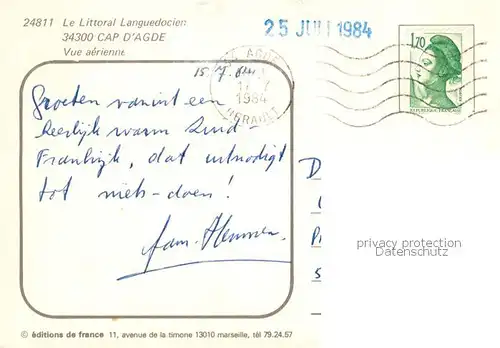 24811 Le Littoral Languedocien
34300 CAP D'AGDE
Vue aérienne
25 JUIL 1984
1,70
RÉPUBLIQUE FRANÇAISE
AGDE
17-7
1984
HERAULT
15.7.84
Groeten vanuit een
heerlijk warm Zuid
Frankrijk, dat uitnodigt
tot niets-doen!
Fam.
D
P
S
privacy protection
VERIFICATION
© éditions de france 11, avenue de la timone 13010 marseille, tél 79.24.57